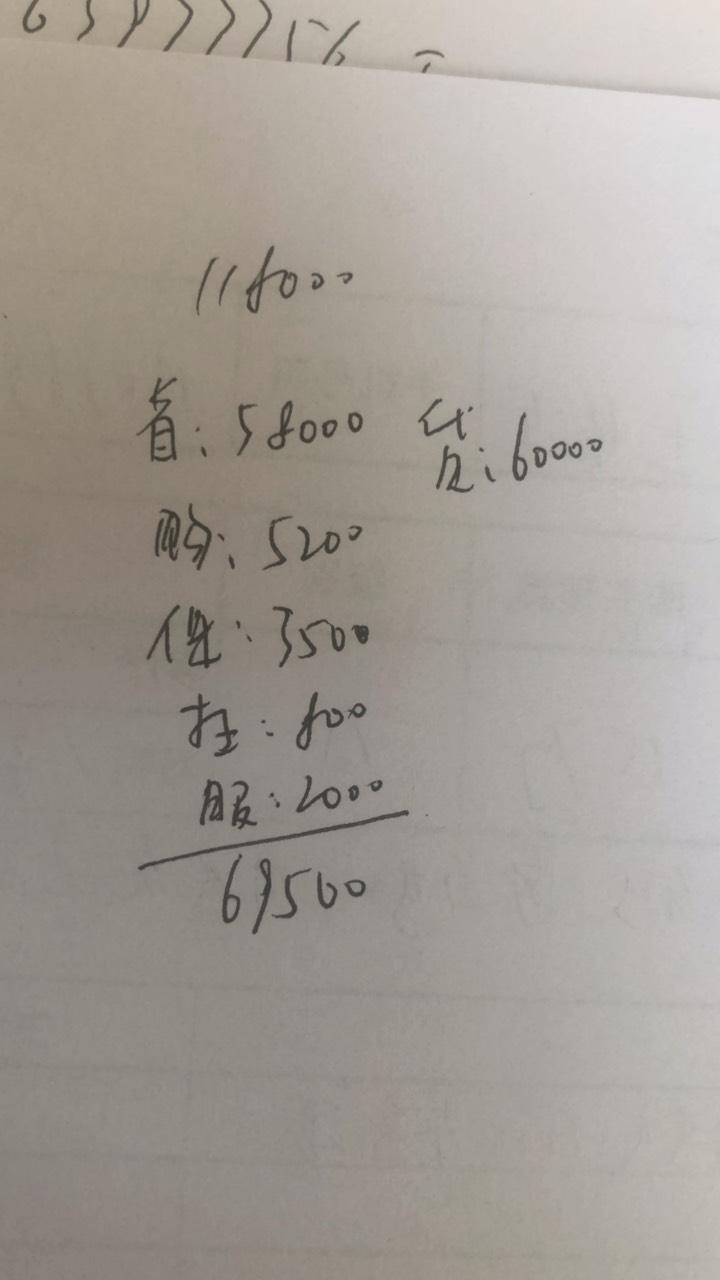 118000
首:58000 贷:60000
购:5200
保:3500
挂:800
服:2000
69500